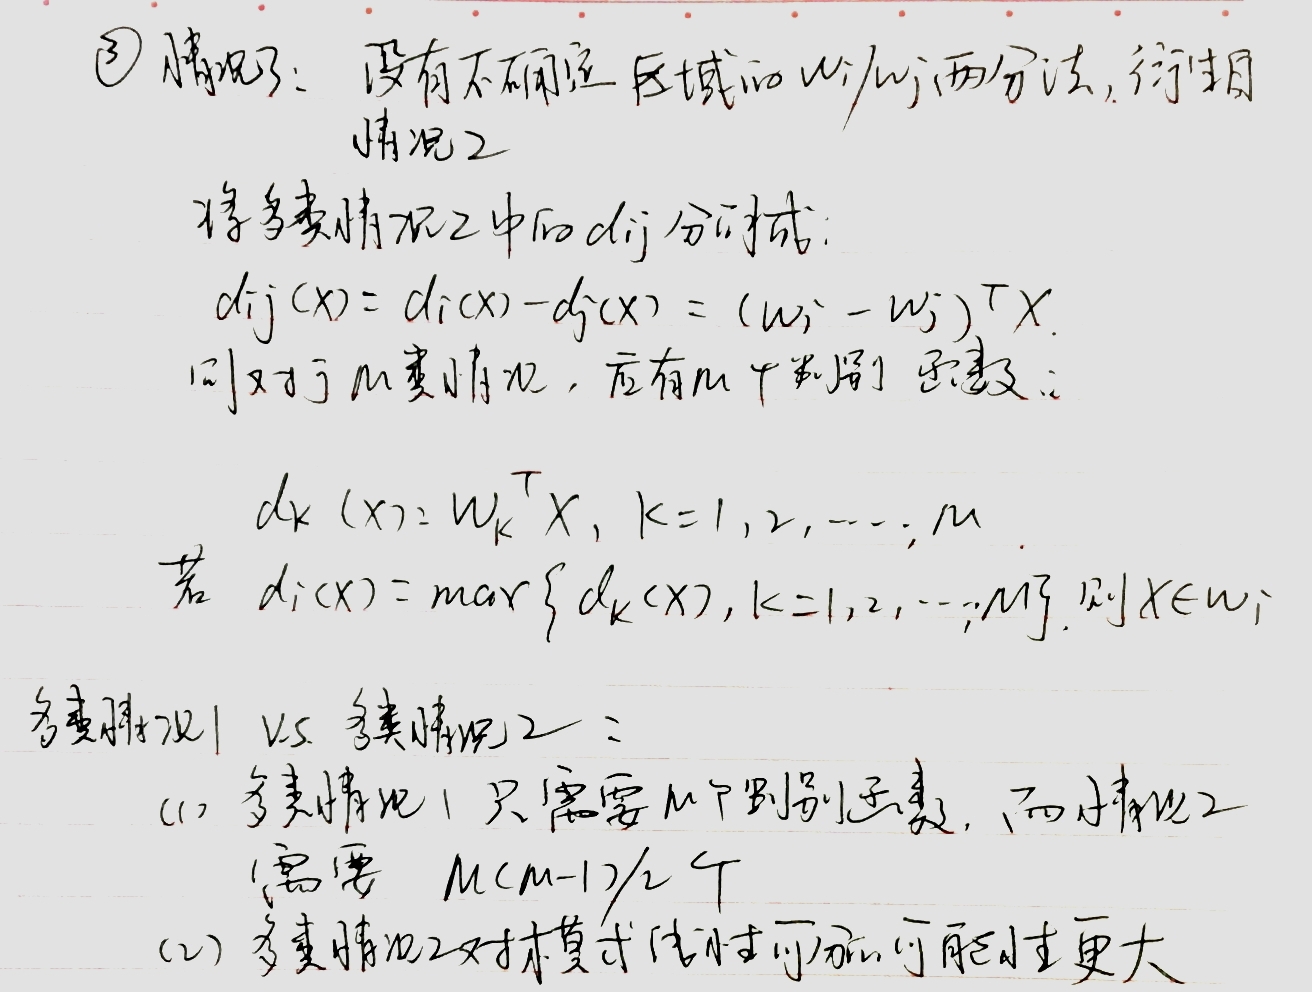 ③ 情况3： 没有不确定区域的 wi/wj 两分法，衍生自
情况2
将多类情况2中的 dij 分解成：
dij(X) = di(X) - dj(X) = (wi - wj)ᵀX.
则对于M类情况，应有M个判别函数：
dk(X) = Wkᵀ X, K=1, 2, ……, M
若 di(X) = max{dk(X), K=1, 2, …, M}, 则 X∈wi
多类情况1 V.S. 多类情况2：
(1) 多类情况1只需要M个判别函数，而情况2
需要 M(M-1)/2 个
(2) 多类情况2对模式线性可分的可能性更大